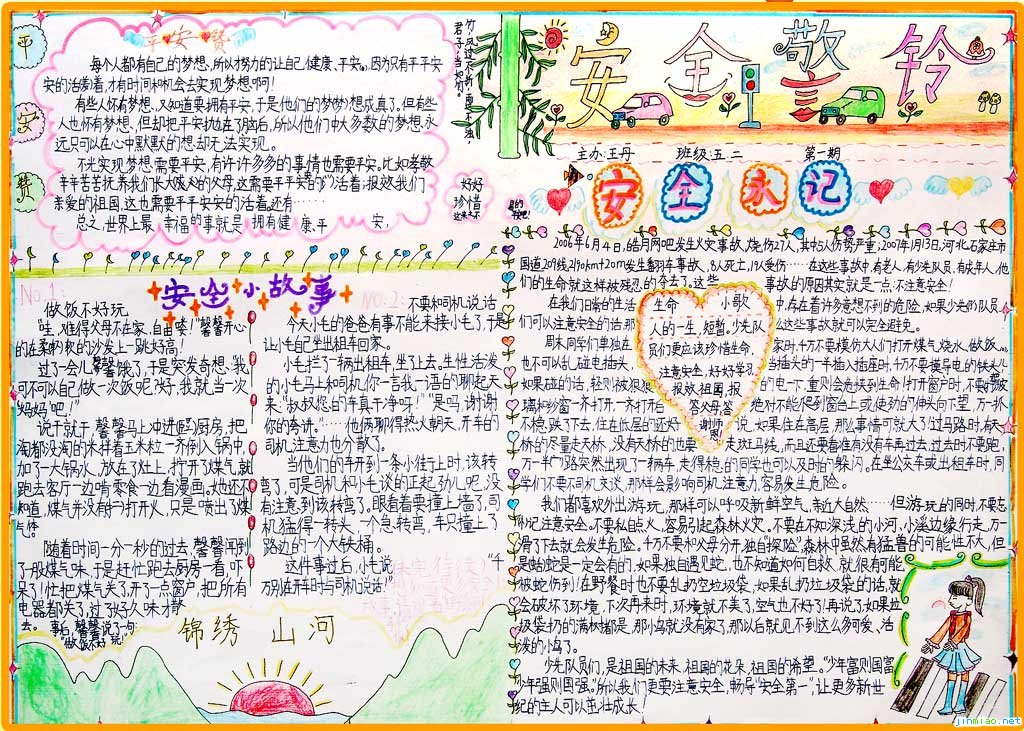 平
安
赞
平安赞
每个人都有自己的梦想,所以努力的让自己健康、平安。因为只有平平安
安的活着,才有时间和机会去实现梦想啊!
有些人怀有梦想,又知道要拥有平安,于是他们的梦想成真了。但有些
人也怀有梦想,但却把平安抛在了脑后,所以他们中大多数的梦想永
远只可以在心中默默的想却无法实现。
不光实现梦想需要平安,有许许多多的事情也需要平安。比如孝敬
辛辛苦苦抚养我们长大的父母,这需要平平安安的活着;报效我们
亲爱的祖国,这也需要平平安安的活着,还有……
总之,世界上最幸福的事就是拥有健康、平安,
好好
珍惜
君子当如竹。
安全警铃
主办:王丹 班级:五二 第一期
安全永记
安全小故事
No.1:
做饭不好玩
“生,难得父母不在家,自由喽!”馨馨开心
的在柔软的沙发上一跳好高!
过了一会儿,馨馨饿了,于是突发奇想:我
可不可以自己做一次饭呢?好,我就当一次
“妈妈”吧!”
说干就干,馨馨马上冲进厨房,把
淘都没淘的米拌着玉米粒一齐倒入锅中,
加了一大锅水,放在了灶上,打开了煤气,就
跑去客厅一边啃零食一边看漫画。她还不
知道,煤气并没有打开火,只是喷出了煤
气体。
随着时间一分一秒的过去,馨馨闻到
了股煤气味,于是赶忙跑去厨房一看,吓
呆了!忙把煤气关了,开了一点窗户,把所有
电器都关了,过了好久味才散
去。事后,馨馨说了一句:
“做饭不好玩”
No.2:
不要和司机说话
今天小毛的爸爸有事不能来接小毛了,于是
让小毛自己坐出租车回家。
小毛拦了一辆出租车,坐了上去。生性活泼
的小毛马上和司机你一言我一语的聊起天
来:“叔叔,您的车真干净呀!”“是吗,谢谢
你的夸讲。”……他俩聊得热火朝天,开车的
司机注意力也分散了。
当他们的车开到一条小街上时,该转
弯了,可是司机和小毛谈的正起劲儿呢,没
有注意到该转弯了。眼看着要撞上墙了,司
机猛得一转头,一个急转弯,车只撞上了
路边的一个大铁桶。
这件事过后,小毛说:“千
万别在开车时与司机说话!”
锦绣山河
2006年6月4日,皓月网吧发生火灾事故,烧伤27人,其中5人伤势严重;2007年1月3日,河北石家庄市
国道207线2190km+20m发生翻车事故,8人死亡,19人受伤……在这些事故中,有老人,有少先队员,有成年人,他
们的生命就这样被残忍的夺去了。这些事故的原因其实就是一点:不注意安全!
在我们日常的生活中,存在着许多意想不到的危险,如果少先队员
们可以注意安全的话,那么这些事故就可以完全避免。
周末同学们单独在家时,千万不要模仿大人们打开煤气烧水、做饭。
也不可以乱碰电插头,当插头的一半插入插座时,千万不要摸导电的铁头
如果碰的话,轻则被狠狠的电一下,重则会危扶到生命!打开窗户时,不要
璃和纱窗一齐打开,一齐打开后绝对不能爬到窗台上或使劲的伸头向下望,万一扒
不稳,跌了下去,住在低层的还好说,如果住在高层,那么事情可就大了!过马路时,有天
桥的尽量走天桥,没有天桥的也要走斑马线,而且还要看准有没有车再过去,过去时不要跑,
万一马路突然出现了一辆车,走得稳的同学也可以及时的躲闪。在坐公交车或出租车时,同
学们不要同司机交谈,那样会影响司机注意力,容易发生危险。
我们都喜欢外出游玩,那样可以呼吸新鲜空气,亲近大自然……但游玩的同时,不要忘
记注意安全。不要私自点火,容易引起森林火灾。不要在不知深浅的小河,小溪边缘行走,万一
滑了下去就会发生危险。千万不要和父母分开,独自“探险”,森林中虽然有猛兽的可能性不大,但
是蛤蛇是一定会有的,如果独自遇见蛇,也不知道如何自救,就很有可能
被蛇伤到!在野餐时也不要乱扔空垃圾袋,如果乱扔垃圾袋的话,就
会破坏了环境,下次再来时,环境就不美了,空气也不好了!再说了,如果垃
圾袋扔的满树都是,那小鸟就没有家了,那以后就见不到这么多可爱、活
泼的小鸟了。
少先队员们,是祖国的未来,祖国的花朵,祖国的希望。“少年富则国富,
少年强则国强。”所以我们更要注意安全,畅导“安全第一”,让更多新世
纪的主人可以茁壮成长!
生命小歌
人的一生,短暂。少先队
员们更应该珍惜生命,
注意安全,好好学习,
报效祖国,报
答父母,答
谢师
恩!
jinmiao.net